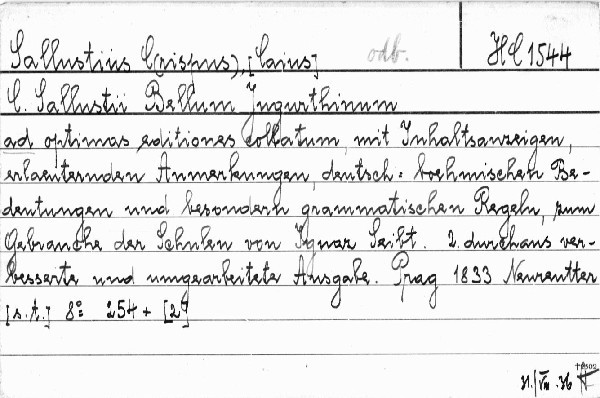 Sallustius C(rispus), [Caius] odb. HC 1544
C. Sallustii Bellum Jugurthinum
ad optimas editiones collatum, mit Inhaltsanzeigen,
erlaeuternden Anmerkungen, deutsch-boehmischen Be-
deutungen und besondern grammatischen Regeln, zum
Gebrauche der Schulen von Ignaz Seibt. 2. durchaus ver-
besserte und umgearbeitete Ausgabe. Prag 1833 Neureutter
[s.t.] 8° 254 + [2]
31./VII. 36